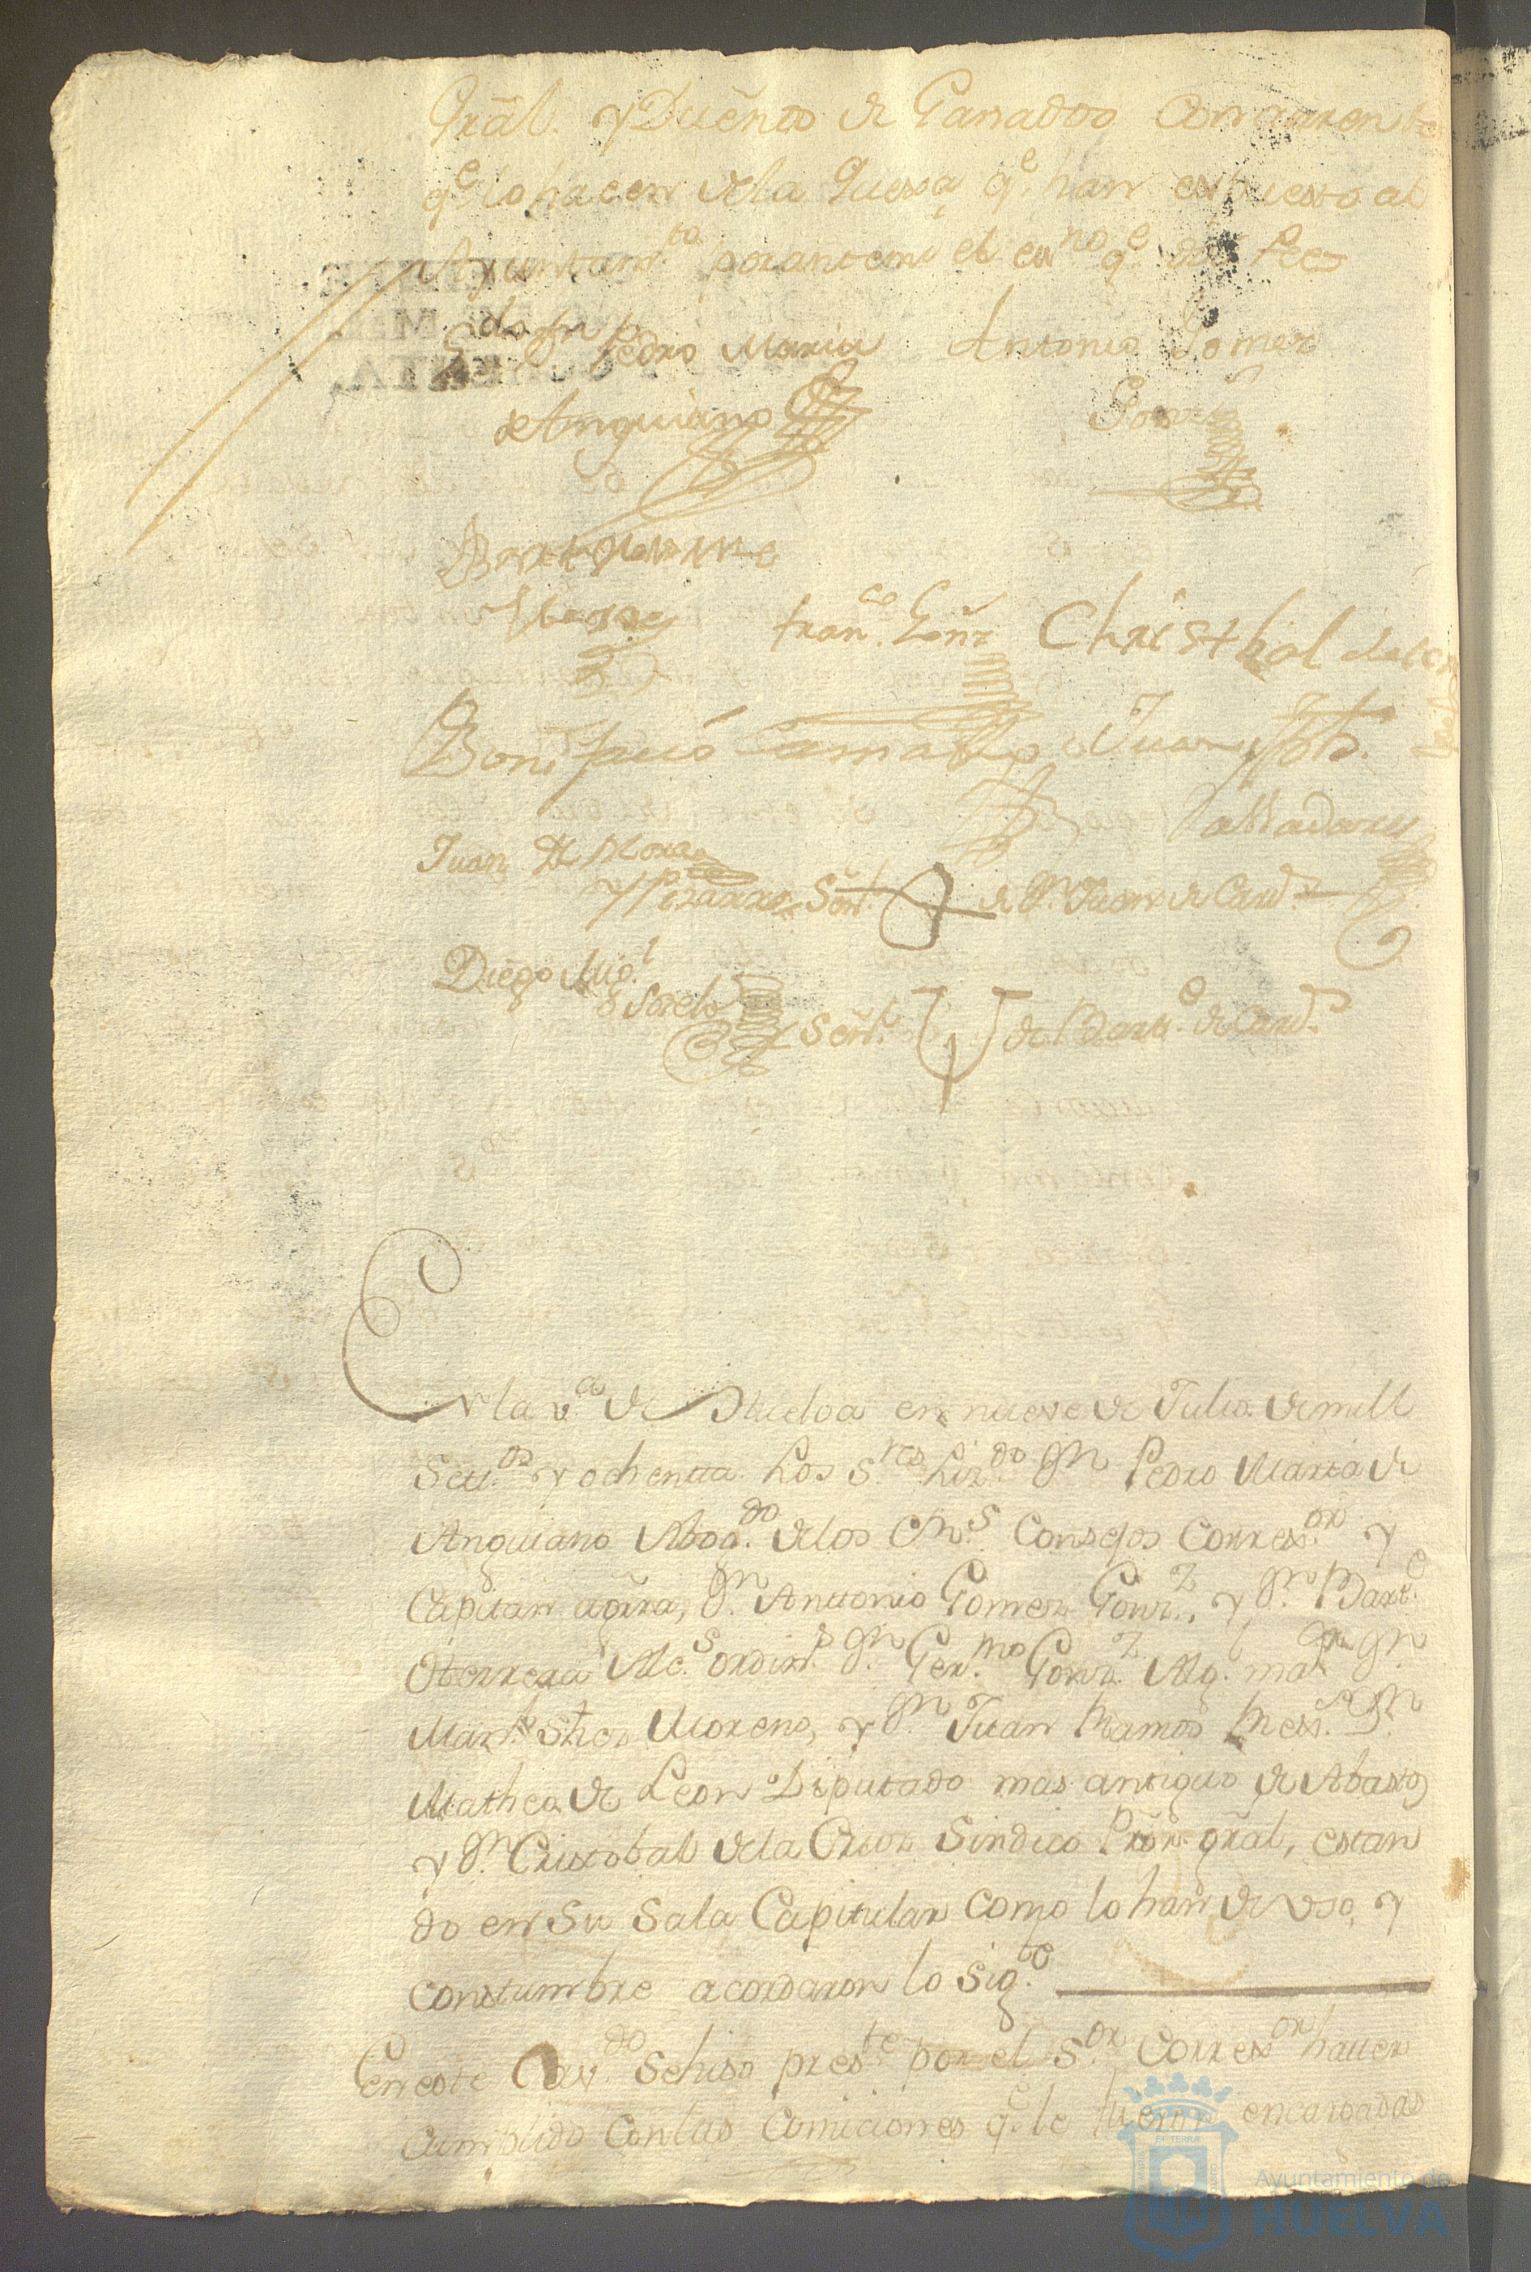 Grãl. y Dueños de Ganados
qe. lo hacen de la Quexa qe. han expuesto al
Ayuntamto. por ante mi el esno. qe. doi fee
Lizdo. Dn. Pedro Maria Antonio Gomez
de Anguiano Gonz
franco. Christobal dela Cruz
Bonifacio Camacho Juan
Valladares
Juan de Mora
y Pizarro Señl. de Dn. Juan de Card.
Diego Migl.
Sorelo Señl. de Barte. de Card.
En la va. de Huelva en nueve de Julio de mill
Setts. y ochentta los Sres. Lizdo. Dn. Pedro Maria de
Anguiano Abogdo. de los Rs. Consejos Correxor. y
Capitan a grra, Dn. Anttonio Gomez Gonz., y Dn. Barte.
Herrera Alcs. ordins. Dn. Germo. Gonz. Alg. mar. Dn.
Marn. Shez Moreno, y Dn. Juan Ramos Rexs. Dn.
Matheo de Leon Diputado mas antiguo de Abastos
y Dn. Cristobal de la Cruz Sindico Prõr. grãl, estan
do en su Sala Capitular como lo han de uso, y
constumbre acordaron lo Sigte.
En este Cavdo. se hiso preste. por el Sor. Correxor. haver
cumplido con las Comiciones qe. le fueron encargadas
EI TERRA
Ayuntamiento de
HUELVA